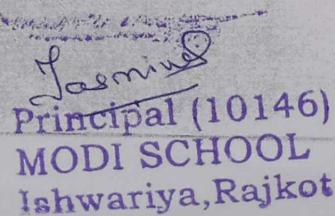 Jasmine
Principal (10146)
MODI SCHOOL
Ishwariya,Rajkot